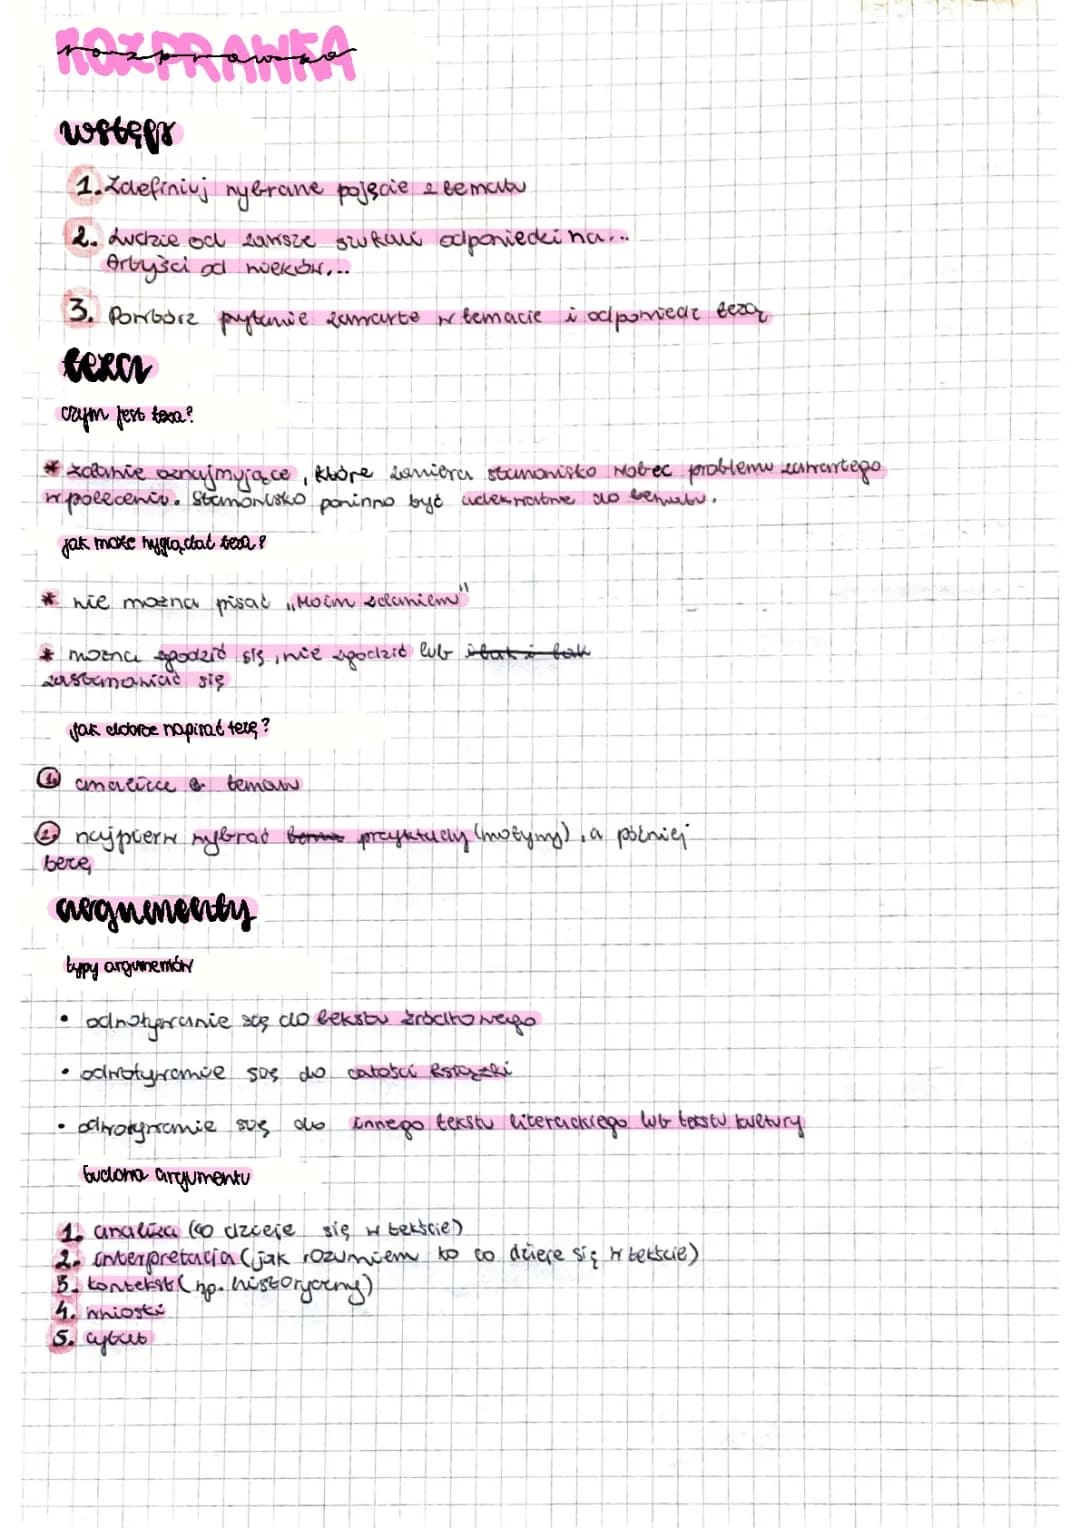 ROZPRAWKA
rozprawka
wstępy
1. Zdefiniuj wybrane pojęcie z tematu
2. Ludzie od zawsze szukali odpowiedzi na...
Artyści od wieków...
3. Powtórz pytanie zawarte w temacie i odpowiedz tezą
teza
czym jest teza?
* zdanie oznajmujące, które zawiera stanowisko wobec problemu zawartego
w poleceniu. Stanowisko powinno być adekwatne do tematu.
jak może wyglądać teza?
* nie można pisać „Moim zdaniem"
* można zgodzić się, nie zgodzić lub i tak i tak
zastanawiać się
jak dobrze napisać tezę?
1. analiza tematu
2. najpierw wybrać przykłady (motywy), a później
tezę
argumenty
typy argumentów
• odwoływanie się do tekstu źródłowego
• odwoływanie się do całości książki
• odwoływanie się do innego tekstu literackiego lub tekstu kultury
budowa argumentu
1. analiza (co dzieje się w tekście)
2. interpretacja (jak rozumiem to co dzieje się w tekście)
3. kontekst (np. historyczny)
4. wnioski
5. cytat